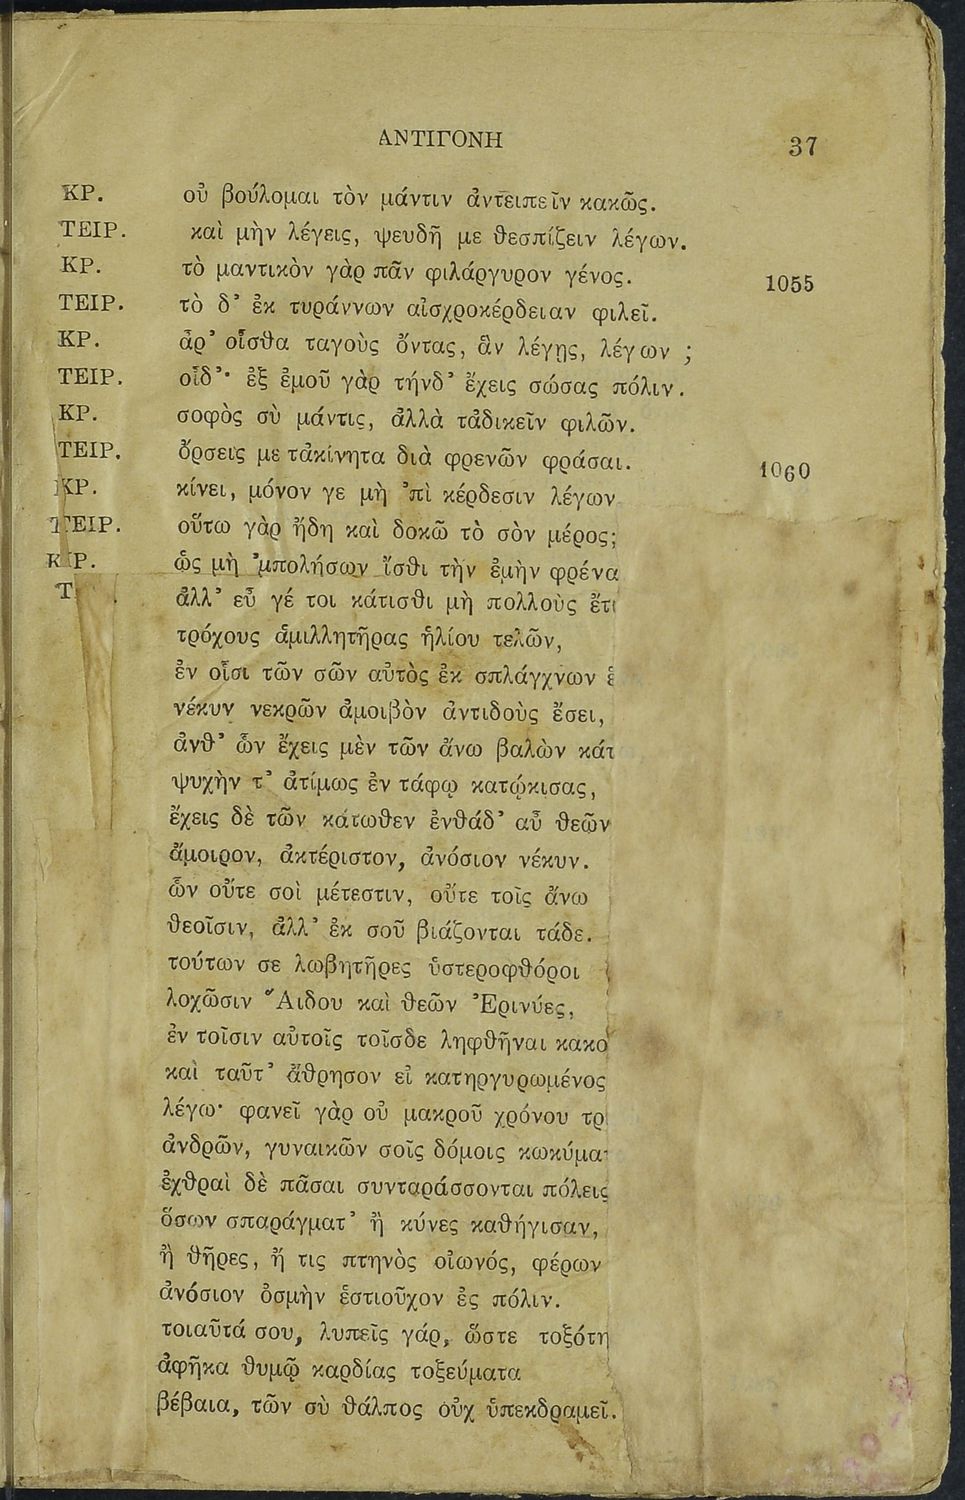 ΑΝΤΙΓΟΝΗ 37
ΚΡ. οὐ βούλομαι τὸν μάντιν ἀντειπεῖν κακῶς.
ΤΕΙΡ. καὶ μὴν λέγεις, ψευδῆ με θεσπίζειν λέγων.
ΚΡ. τὸ μαντικὸν γὰρ πᾶν φιλάργυρον γένος. 1055
ΤΕΙΡ. τὸ δ’ ἐκ τυράννων αἰσχροκέρδειαν φιλεῖ.
ΚΡ. ἆρ’ οἶσθα ταγοὺς ὄντας, ἃν λέγῃς, λέγων ;
ΤΕΙΡ. οἶδ’· ἐξ ἐμοῦ γὰρ τήνδ’ ἔχεις σώσας πόλιν.
ΚΡ. σοφὸς σὺ μάντις, ἀλλὰ τἀδικεῖν φιλῶν.
ΤΕΙΡ. ὄρσεις με τἀκίνητα διὰ φρενῶν φράσαι. 1060
ΚΡ. κίνει, μόνον γε μὴ ’πὶ κέρδεσιν λέγων
ΤΕΙΡ. οὕτω γὰρ ἤδη καὶ δοκῶ τὸ σὸν μέρος;
ΚΡ. ὡς μὴ ’μπολήσων ἴσθι τὴν ἐμὴν φρένα
Τ ἀλλ’ εὖ γέ τοι κάτισθι μὴ πολλοὺς ἔτι
τρόχους ἁμιλλητῆρας ἡλίου τελῶν,
ἐν οἷσι τῶν σῶν αὐτὸς ἐκ σπλάγχνων ἑ
νέκυν νεκρῶν ἀμοιβὸν ἀντιδοὺς ἔσει,
ἀνθ’ ὧν ἔχεις μὲν τῶν ἄνω βαλὼν κάτ
ψυχὴν τ’ ἀτίμως ἐν τάφῳ κατῴκισας,
ἔχεις δὲ τῶν κάτωθεν ἐνθάδ’ αὖ θεῶν
ἄμοιρον, ἀκτέριστον, ἀνόσιον νέκυν.
ὧν οὔτε σοὶ μέτεστιν, οὔτε τοῖς ἄνω
θεοῖσιν, ἀλλ’ ἐκ σοῦ βιάζονται τάδε.
τούτων σε λωβητῆρες ὑστεροφθόροι
λοχῶσιν Ἅιδου καὶ θεῶν Ἐρινύες,
ἐν τοῖσιν αὐτοῖς τοῖσδε ληφθῆναι κακο
καὶ ταῦτ’ ἄθρησον εἰ κατηργυρωμένος
λέγω· φανεῖ γὰρ οὐ μακροῦ χρόνου τρ
ἀνδρῶν, γυναικῶν σοῖς δόμοις κωκύμα
ἐχθραὶ δὲ πᾶσαι συνταράσσονται πόλεις
ὅσων σπαράγματ’ ἢ κύνες καθήγισαν,
ἢ θῆρες, ἤ τις πτηνὸς οἰωνός, φέρων
ἀνόσιον ὀσμὴν ἑστιοῦχον ἐς πόλιν.
τοιαῦτά σου, λυπεῖς γάρ, ὥστε τοξότη
ἀφῆκα θυμῷ καρδίας τοξεύματα
βέβαια, τῶν σὺ θάλπος οὐχ ὑπεκδραμεῖ.